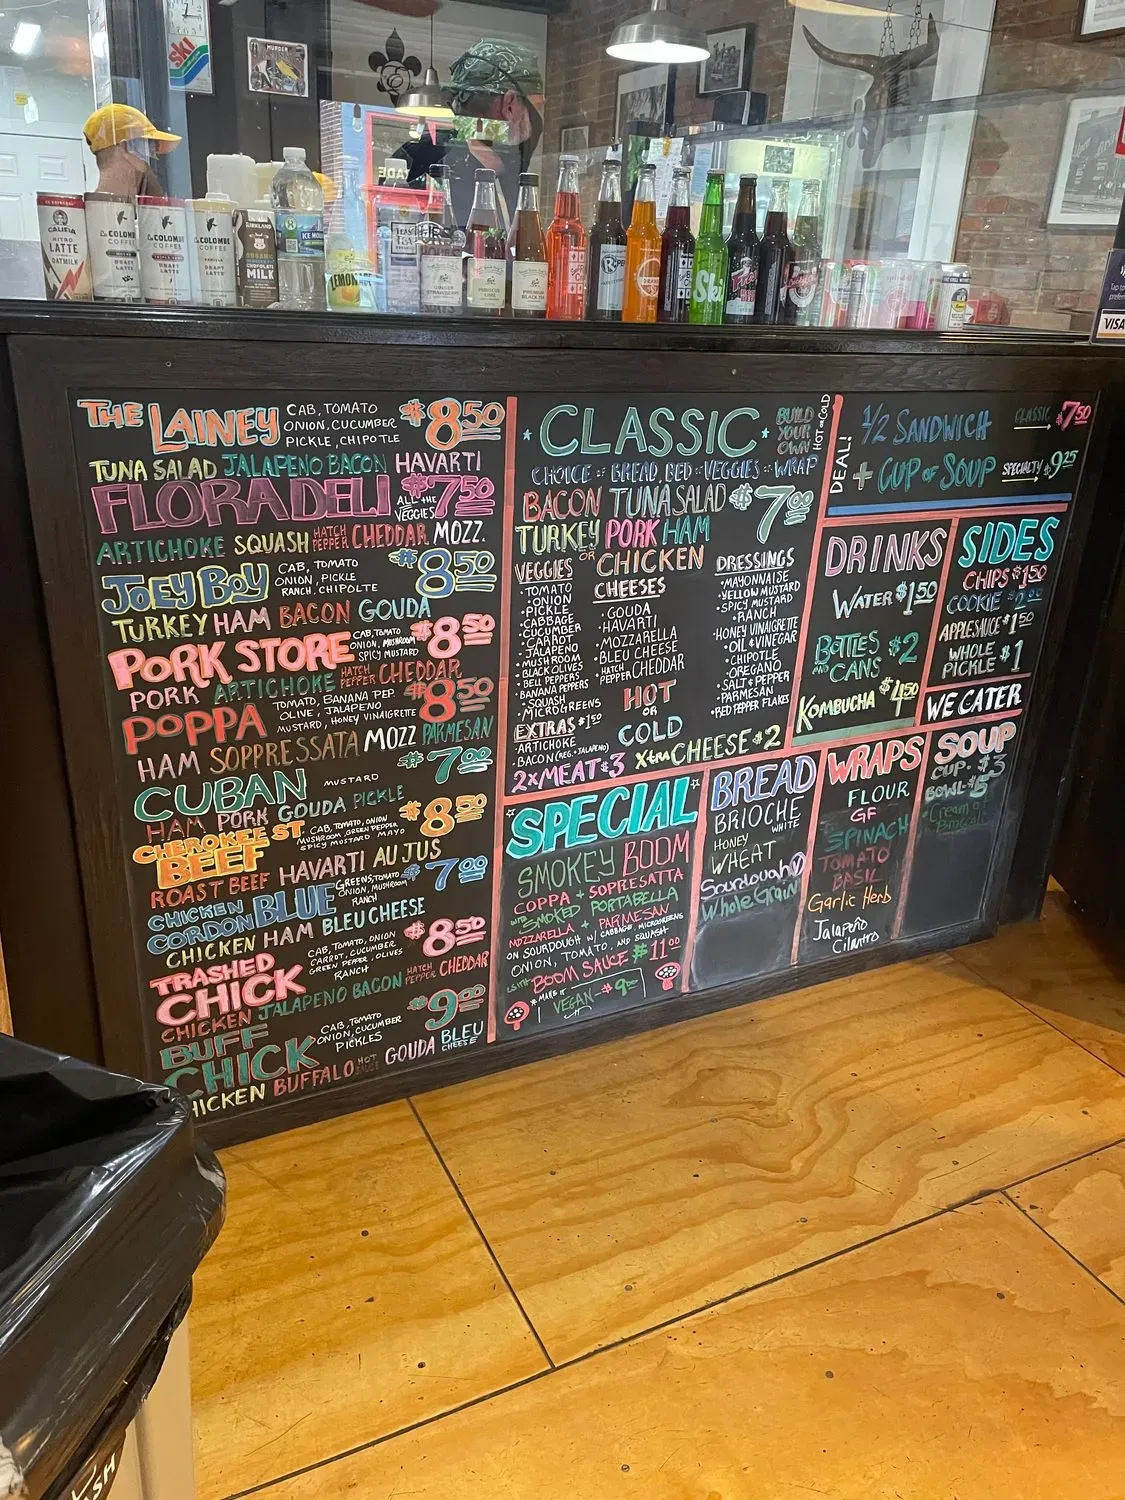 ski
CALIFIA
NITRO
LATTE
OATMILK
LA COLOMBE
COFFEE
DRAFT
LATTE
LA COLOMBE
COFFEE
DRAFT
LATTE
COLOMBE
COFFEE
DRAFT
LATTE
KIRKLAND
ORGANIC
CHOCOLATE
MILK
ICE MOUNTAIN
LEMONADE
GINGER
HIBISCUS
PREMIUM
BLACK TEA
Ski
VISA
THE LAINEY
CAB, TOMATO
ONION, CUCUMBER
PICKLE, CHIPOTLE
$8.50
TUNA SALAD JALAPENO BACON HAVARTI
FLORADELI
ALL THE
VEGGIES
$7.50
ARTICHOKE SQUASH HATCH PEPPER CHEDDAR MOZZ.
JOEY BOY
CAB, TOMATO
ONION, PICKLE
RANCH, CHIPOLTE
$8.50
TURKEY HAM BACON GOUDA
PORK STORE
CAB, TOMATO
ONION, MUSHROOM
SPICY MUSTARD
$8.50
PORK ARTICHOKE HATCH PEPPER CHEDDAR
POPPA
TOMATO, BANANA PEP
OLIVE, JALAPENO
MUSTARD, HONEY VINAIGRETTE
$8.50
HAM SOPPRESSATA MOZZ PARMESAN
CUBAN
MUSTARD
$7.00
HAM PORK GOUDA PICKLE
CHEROKEE ST.
BEEF
CAB, TOMATO, ONION
MUSHROOM, GREEN PEPPER
SPICY MUSTARD MAYO
$8.50
ROAST BEEF HAVARTI AU JUS
CHICKEN
CORDON BLUE
GREENS, TOMATO
ONION, MUSHROOM
RANCH
$7.00
CHICKEN HAM BLEU CHEESE
TRASHED
CHICK
CAB, TOMATO, ONION
CARROT, CUCUMBER
GREEN PEPPER, OLIVES
RANCH
$8.50
CHICKEN JALAPENO BACON HATCH PEPPER CHEDDAR
BUFF
CHICK
CAB, TOMATO
ONION, CUCUMBER
PICKLES
$9.00
CHICKEN BUFFALO HOT SAUCE GOUDA BLEU CHEESE
CLASSIC
BUILD
YOUR
OWN
HOT OR COLD
CHOICE OF BREAD, BED OF VEGGIES OR WRAP
BACON TUNA SALAD
TURKEY PORK HAM
OR CHICKEN
$7.00
VEGGIES
• TOMATO
• ONION
• PICKLE
• CABBAGE
• CUCUMBER
• CARROT
• JALAPENO
• MUSHROOM
• BLACK OLIVES
• BELL PEPPERS
• BANANA PEPPERS
• SQUASH
• MICROGREENS
EXTRAS $1.50
• ARTICHOKE
• BACON (REG. + JALAPENO)
2X MEAT $3
CHEESES
• GOUDA
• HAVARTI
• MOZZARELLA
• BLEU CHEESE
• HATCH PEPPER CHEDDAR
HOT
OR
COLD
XtraCHEESE $2
DRESSINGS
• MAYONNAISE
• YELLOW MUSTARD
• SPICY MUSTARD
• RANCH
• HONEY VINAIGRETTE
• OIL & VINEGAR
• CHIPOTLE
• OREGANO
• SALT & PEPPER
• PARMESAN
• RED PEPPER FLAKES
DEAL!
1/2 SANDWICH
+ CUP OF SOUP
CLASSIC → $7.50
SPECIALTY → $9.25
DRINKS
WATER $1.50
BOTTLES
AND CANS $2
KOMBUCHA $4.50
SIDES
CHIPS $1.50
COOKIE $2.00
APPLESAUCE $1.50
WHOLE
PICKLE $1
WE CATER
SPECIAL
SMOKEY BOOM
COPPA + SOPRESATTA
WITH SMOKED PORTABELLA
MOZZARELLA + PARMESAN
ON SOURDOUGH W/ CABBAGE, MICROGREENS
ONION, TOMATO, AND SQUASH
WITH BOOM SAUCE $11.00
* MAKE IT
VEGAN - $9.00
BREAD
BRIOCHE
WHITE
HONEY
WHEAT
Sourdough V
Whole Grain
WRAPS
FLOUR
GF
SPINACH
TOMATO
BASIL
Garlic Herb
Jalapeño
Cilantro
SOUP
CUP: $3
BOWL: $5
Cream of
Broccoli